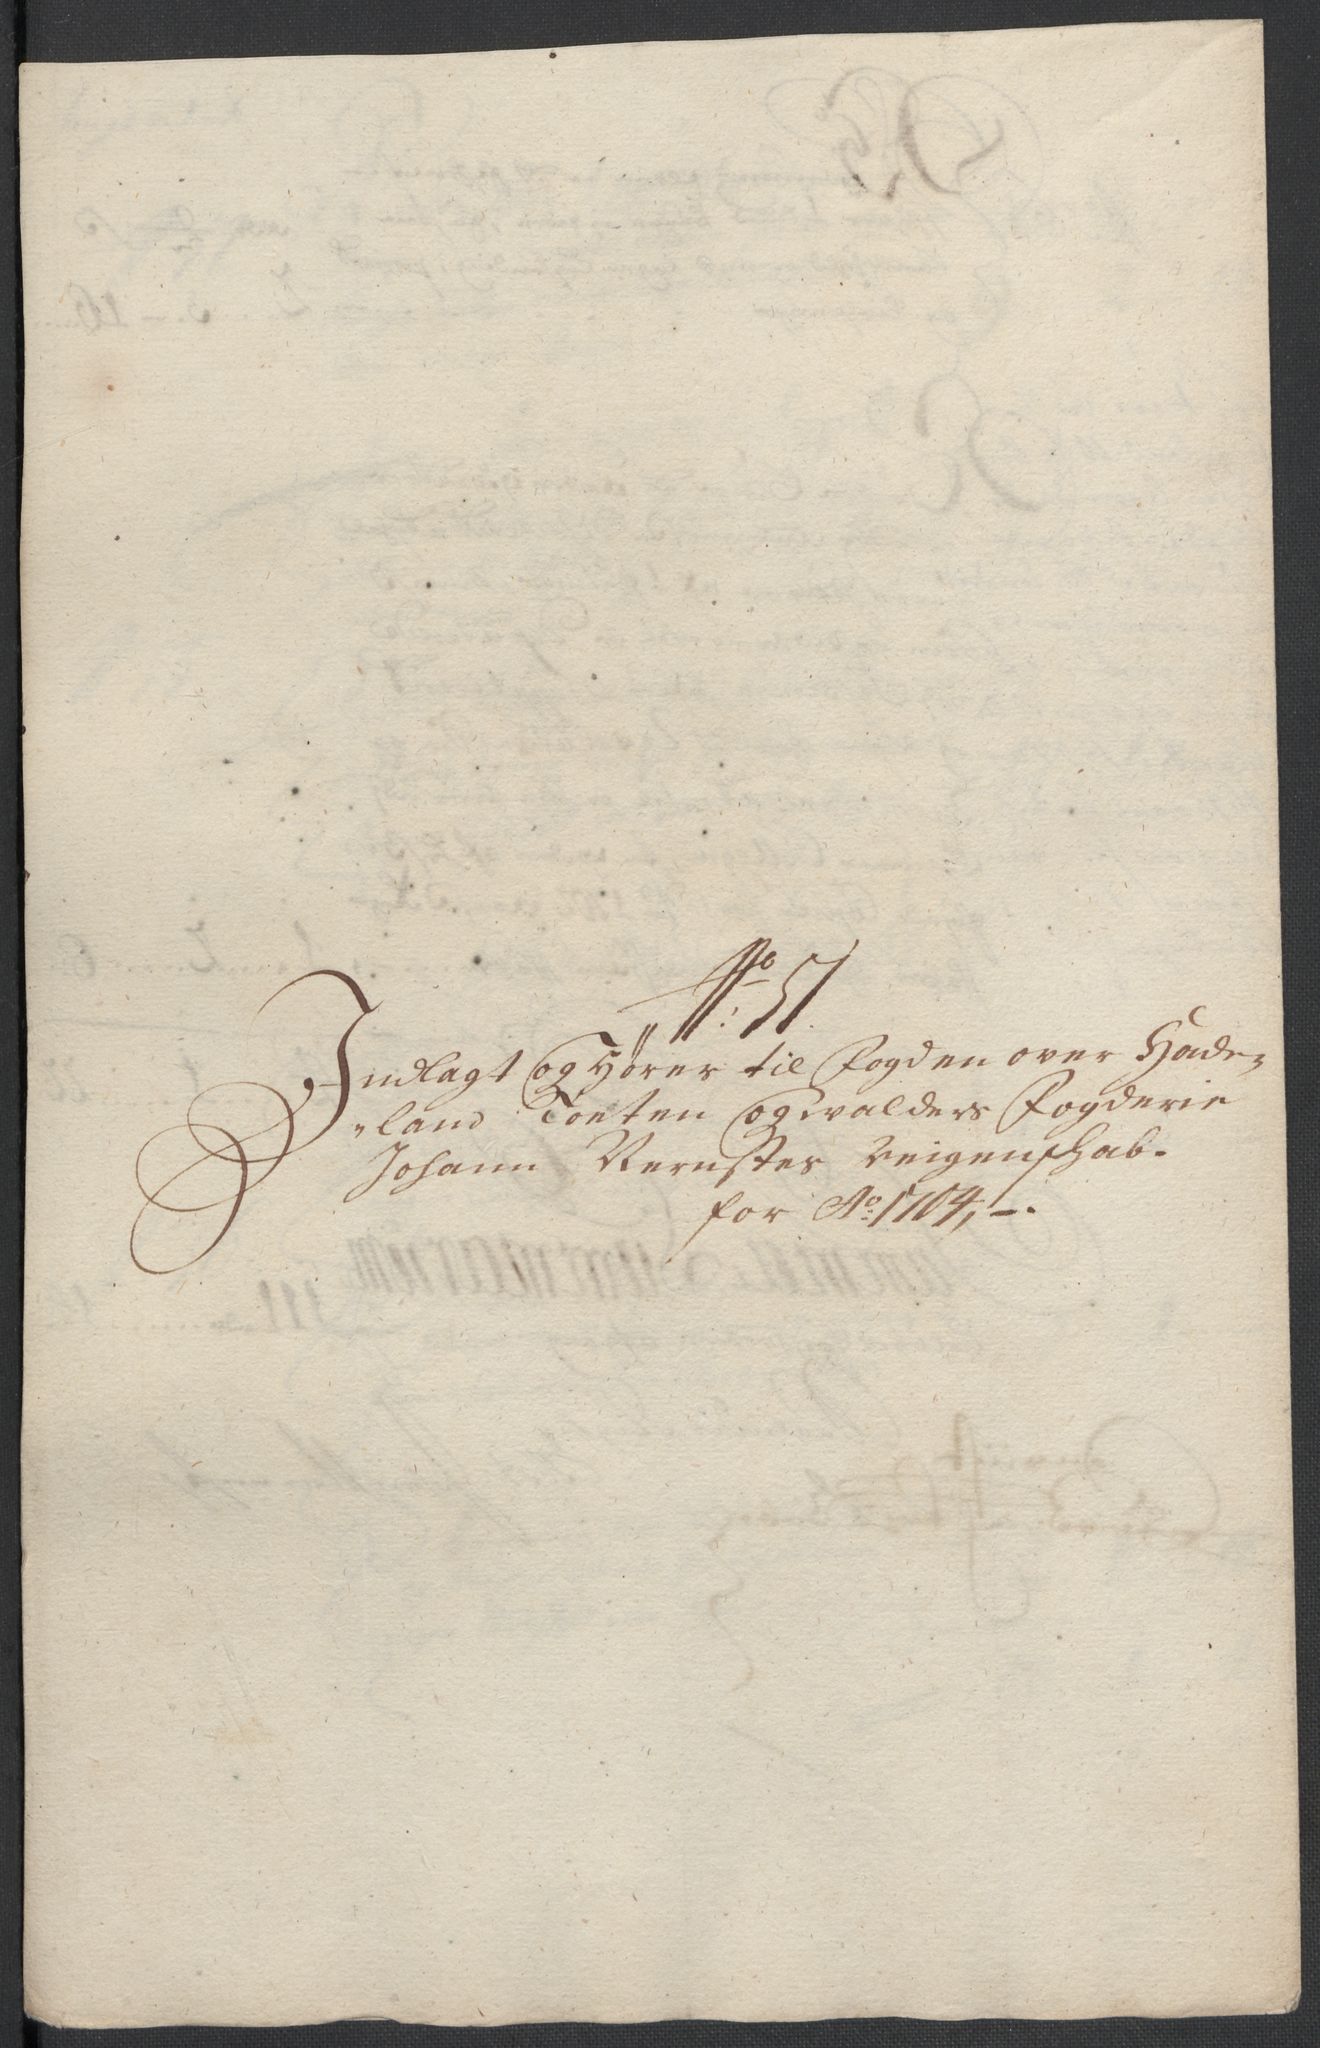 No: 51.
Indlagt og Hører til Fogden over Hade-
land Toeten og Walders Fogderie
Johann Rernsters Reigenschab.
for Ao: 1704,-.